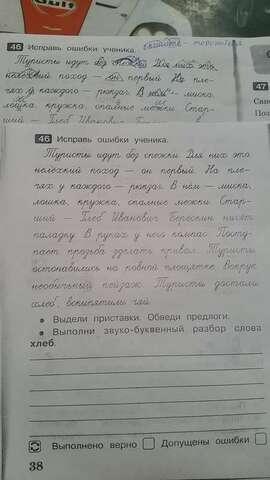 Gulf
46 Исправь ошибки ученика.
Туристы идут без
нелёхкий поход — он первый На пле-
чях у каждого — рюкзаг. В нём — миска,
лошка, кружка, спалные межки Стар-
ший — Глеб Иванович
47
46 Исправь ошибки ученика.
Туристы идут бес спежки Для них это
нелёхкий поход — он первый. На пле-
чях у каждого — рюкзаг. В нём — миска,
лошка, кружка, спалные межки Стар-
ший — Глеб Иванович Берескин несёт
паладку. В руках у него компас Посту-
пает прозьба зделать привал. Туристы
астановились на ровной площятке Вокруг
необычьный пейзаж Туристы достали
хлеб, вскипятили чяй.
● Выдели приставки. Обведи предлоги.
● Выполни звуко-буквенный разбор слова
хлеб.
Выполнено верно Допущены ошибки
38